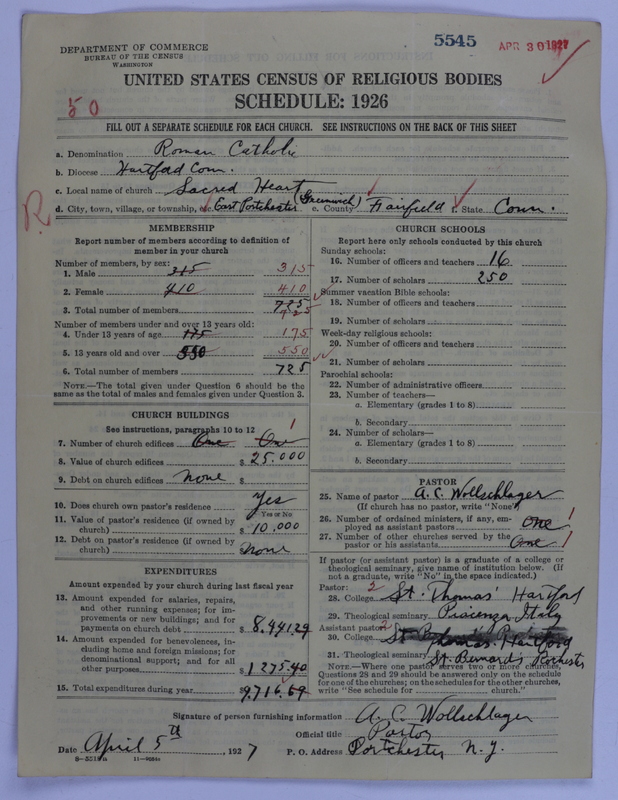 5545
APR 30 1927
DEPARTMENT OF COMMERCE
BUREAU OF THE CENSUS
WASHINGTON
UNITED STATES CENSUS OF RELIGIOUS BODIES
50
SCHEDULE: 1926
FILL OUT A SEPARATE SCHEDULE FOR EACH CHURCH. SEE INSTRUCTIONS ON THE BACK OF THIS SHEET
a. Denomination Roman Catholic
b. Diocese Hartford Conn.
c. Local name of church Sacred Heart
d. City, town, village, or township, etc. East Portchester (Greenwich) e. County Fairfield f. State Conn.
R
MEMBERSHIP
Report number of members according to definition of
member in your church
Number of members, by sex:
1. Male 315 315
2. Female 410 410
3. Total number of members 725
725
Number of members under and over 13 years old:
4. Under 13 years of age 175 175
5. 13 years old and over 550 550
6. Total number of members 725
NOTE.—The total given under Question 6 should be the
same as the total of males and females given under Question 3.
CHURCH BUILDINGS
See instructions, paragraphs 10 to 12
7. Number of church edifices One One 1
8. Value of church edifices $ 25.000
9. Debt on church edifices none $
10. Does church own pastor's residence Yes
Yes or No
11. Value of pastor's residence (if owned by
church) $ 10,000
12. Debt on pastor's residence (if owned by
church) $ none
EXPENDITURES
Amount expended by your church during last fiscal year
13. Amount expended for salaries, repairs,
and other running expenses; for im-
provements or new buildings; and for
payments on church debt $ 8.441.29
14. Amount expended for benevolences, in-
cluding home and foreign missions; for
denominational support; and for all
other purposes 1275.40
15. Total expenditures during year $ 9,716.69
CHURCH SCHOOLS
Report here only schools conducted by this church
Sunday schools:
16. Number of officers and teachers 16
17. Number of scholars 250
Summer vacation Bible schools:
18. Number of officers and teachers
19. Number of scholars
Week-day religious schools:
20. Number of officers and teachers
21. Number of scholars
Parochial schools:
22. Number of administrative officers
23. Number of teachers—
a. Elementary (grades 1 to 8)
b. Secondary
24. Number of scholars—
a. Elementary (grades 1 to 8)
b. Secondary
PASTOR
25. Name of pastor A. C. Wollschlager
(If church has no pastor, write "None")
26. Number of ordained ministers, if any, em-
ployed as assistant pastors one 1
27. Number of other churches served by the
pastor or his assistants One 1
If pastor (or assistant pastor) is a graduate of a college or
theological seminary, give name of institution below. (If
not a graduate, write "No" in the space indicated.)
Pastor: 2
28. College St. Thomas' Hartford
29. Theological seminary Piacenza Italy
Assistant pastor: 2
30. College St. Thomas. Hartford
31. Theological seminary St. Bernard's Rochester
NOTE.—Where one pastor serves two or more churches,
Questions 28 and 29 should be answered only on the schedule
for one of the churches; on the schedules for the other churches,
write "See schedule for church."
Signature of person furnishing information A. C. Wollschlager
Official title Pastor
Date April 5th, 1927 P. O. Address Portchester N.Y.